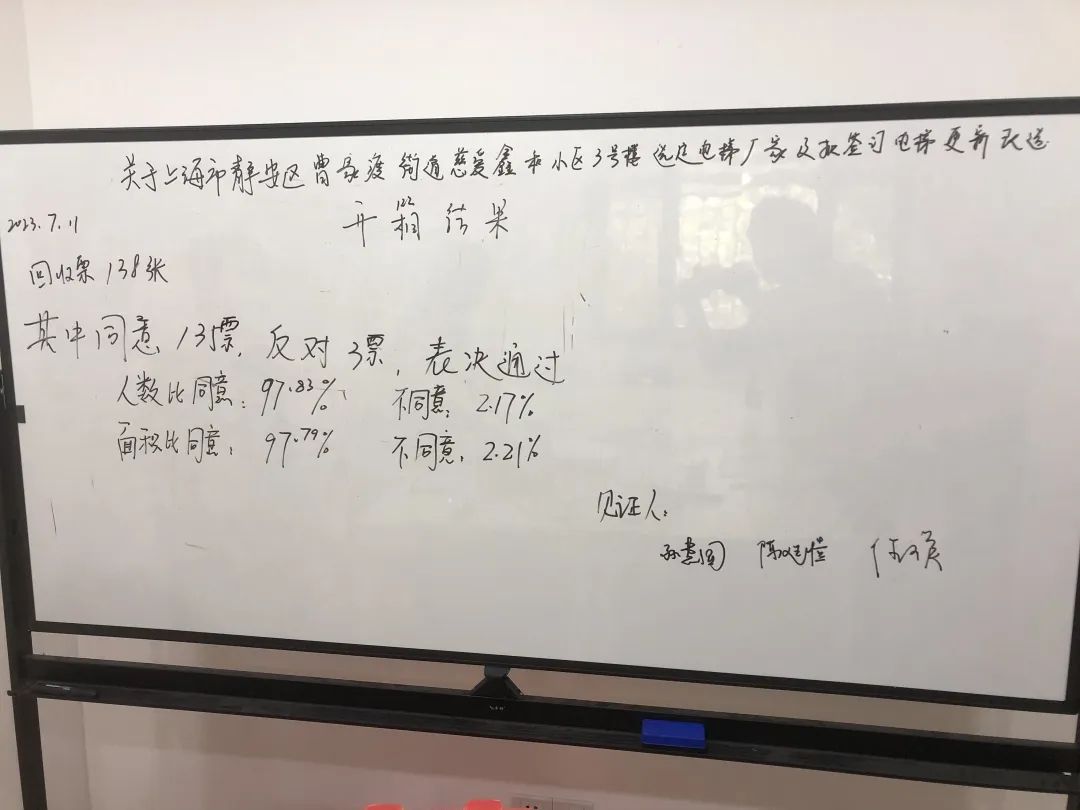 关于上海市静安区曹家渡街道慈爱鑫本小区3号楼选定电梯厂家及授权签订电梯更新改造
开箱结果
2023.7.11
回收票138张
其中同意135票,反对3票,表决通过
人数比同意:97.83% 不同意:2.17%
面积比同意:97.79% 不同意:2.21%
见证人: